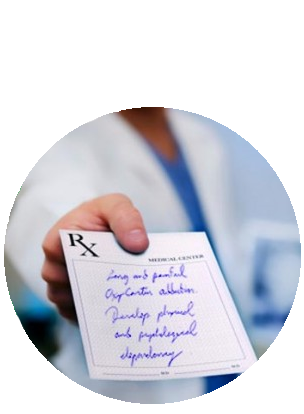 Rx
MEDICAL CENTER
Long and painful
OxyContin addiction.
Develop physical
and psychological
dependency